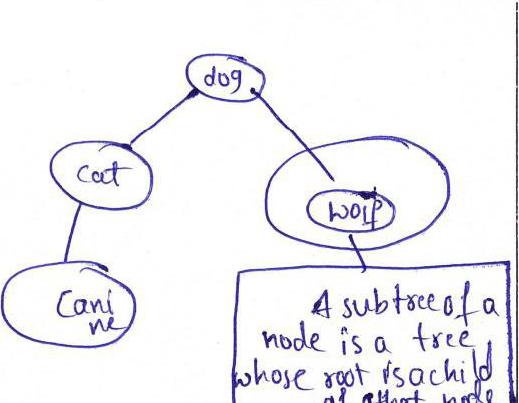 dog
cat
wolf
Cani
ne
A subtree of a
node is a tree
whose root is a child
of that node